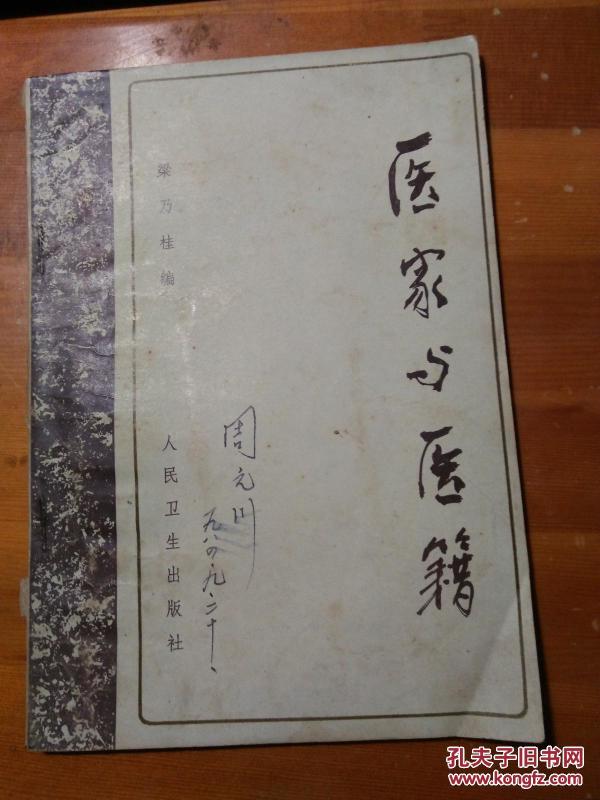 医家与医籍
梁乃桂编
人民卫生出版社
周元川
九八四.九.二十.
孔夫子旧书网
www.kongfz.com